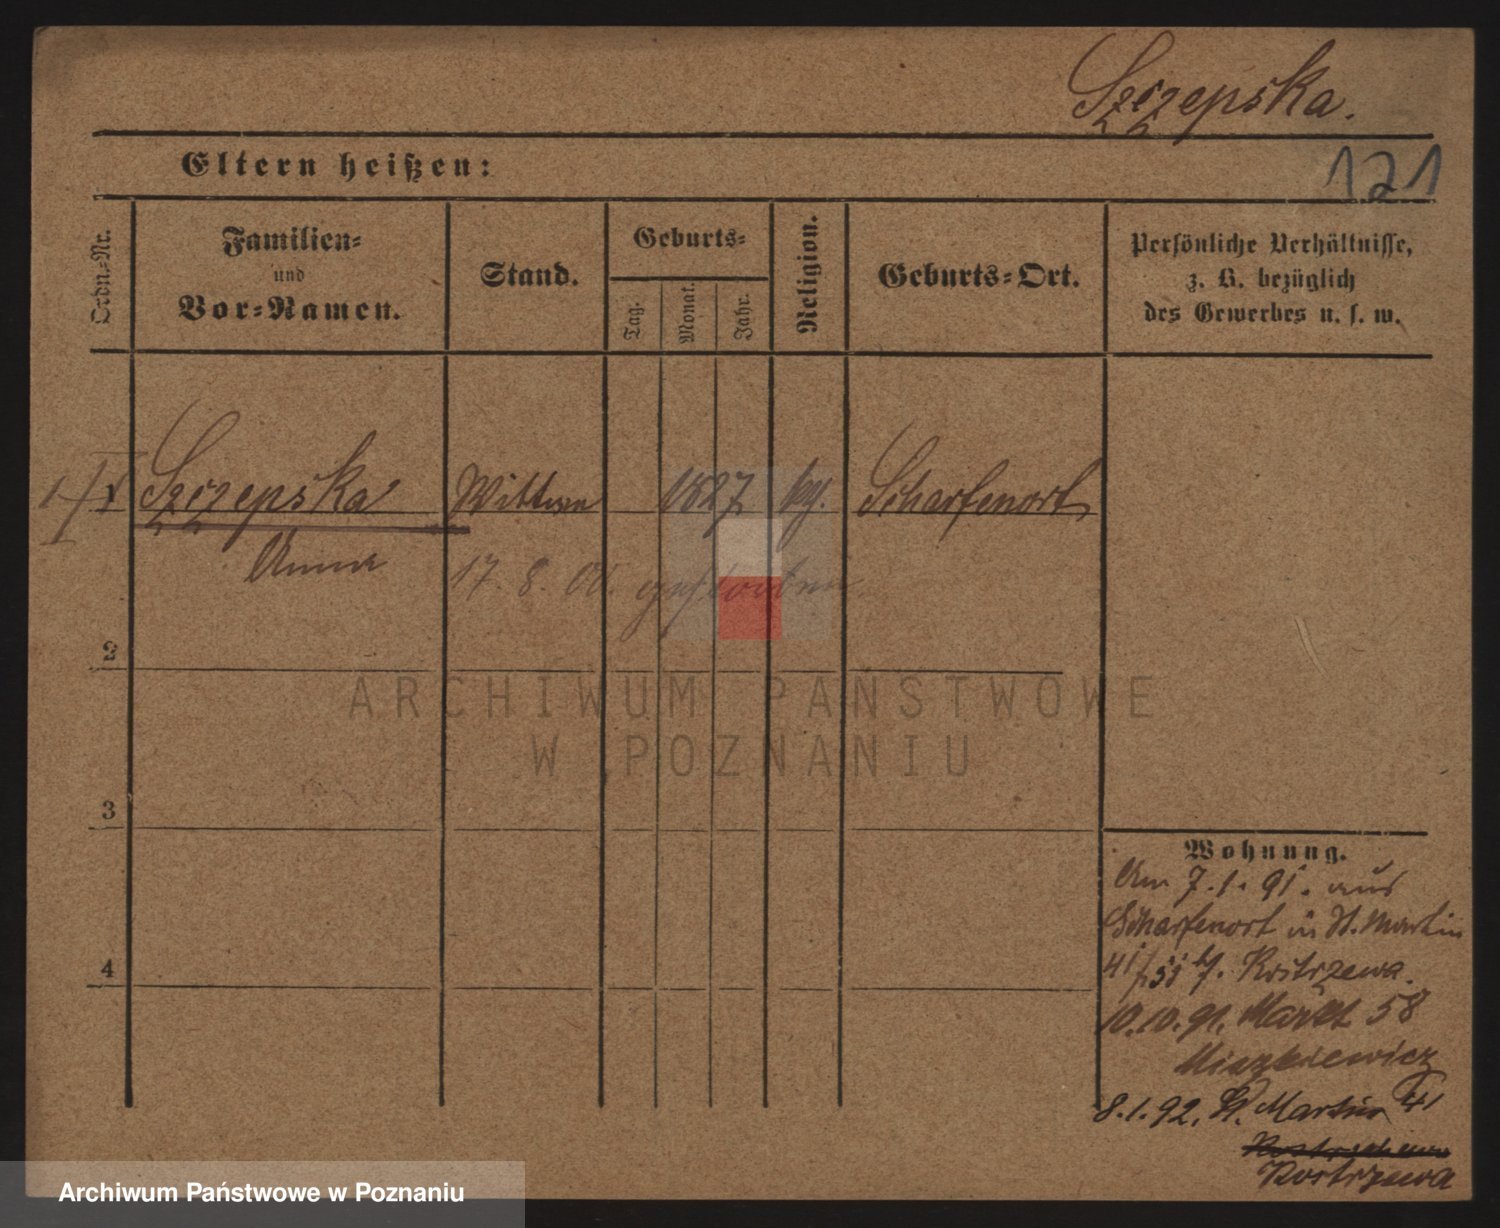 Szczepska.
Eltern heißen:
121
Ordn.-Nr.
Familien-
und
Vor-Namen.
Stand.
Geburts-
Tag.
Monat.
Jahr.
Religion.
Geburts-Ort.
Persönliche Verhältnisse,
z. B. bezüglich
des Gewerbes u. s. w.
1 Szczepska Wittwe 1827 Scharfenort
Anna 17. 8. 00. gestorben
2
ARCHIWUM PAŃSTWOWE
W POZNANIU
3
Wohnung.
Am 7.1.91. aus
Scharfenort in St. Martin
41 b/. Kostrzewa.
10.10.91. Markt 58
4
8.1.92. St. Martin 41
Kostrzewa
Archiwum Państwowe w Poznaniu